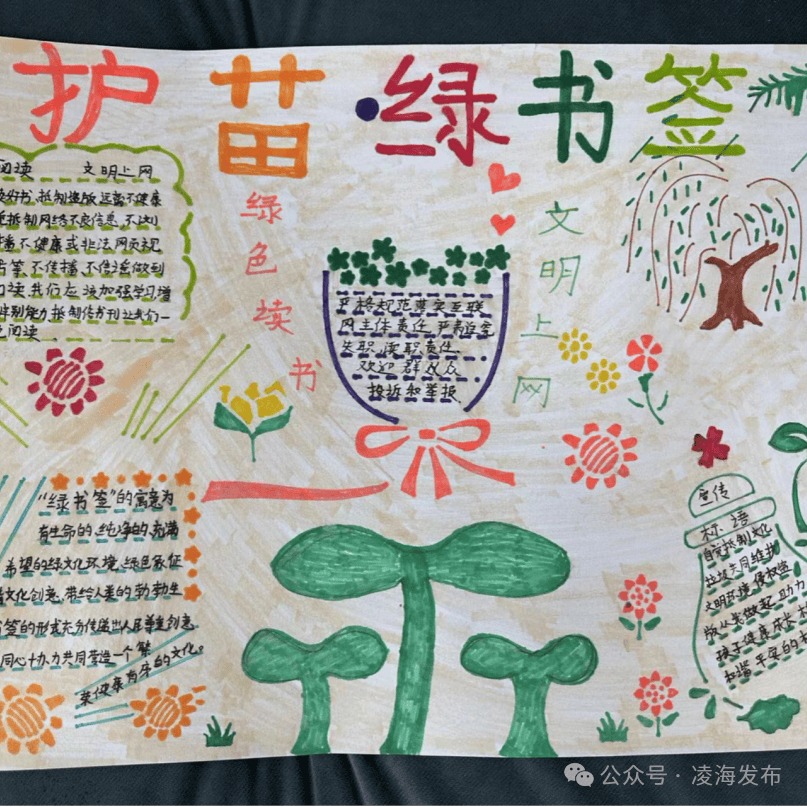 护苗·绿书签
阅读 文明上网
读好书,抵制盗版
抵制网络不良信息,不浏
播不健康或非法网页
不传播、不
阅读,我们应该加强学习增
辨别能力,抵制 书刊让我们一
色阅读
绿色读书
严格规范落实互联
网主体责任,严肃追究
失职、渎职责任。
欢迎群众
投诉和举报
文明上网
“绿书签”的寓意为
有生命的、纯净的、充满
希望的绿文化环境,绿色象征
着文化创意,带给人类的勃勃生
书签的形式充分传递出人民尊重创意
同心协力共同营造一个繁
荣健康向上的文化。
宣传
标语
自觉抵制文化
垃圾共同维护
文明环境侵权盗
版从我做起助力
孩子健康成长
和谐、平安的
公众号·凌海发布